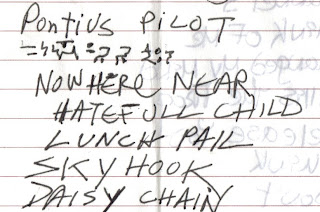 PONTIUS PILOT
NOWHERE NEAR
HATEFULL CHILD
LUNCH PAIL
SKYHOOK
DAISY CHAIN